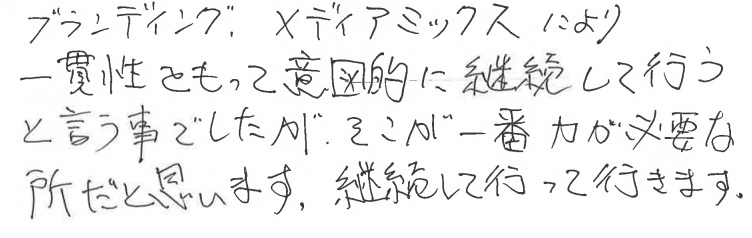 ブランディング、メディアミックスにより
一貫性をもって意図的に継続して行う
と言う事でしたが、そこが一番力が必要な
所だと思います。継続して行って行きます。